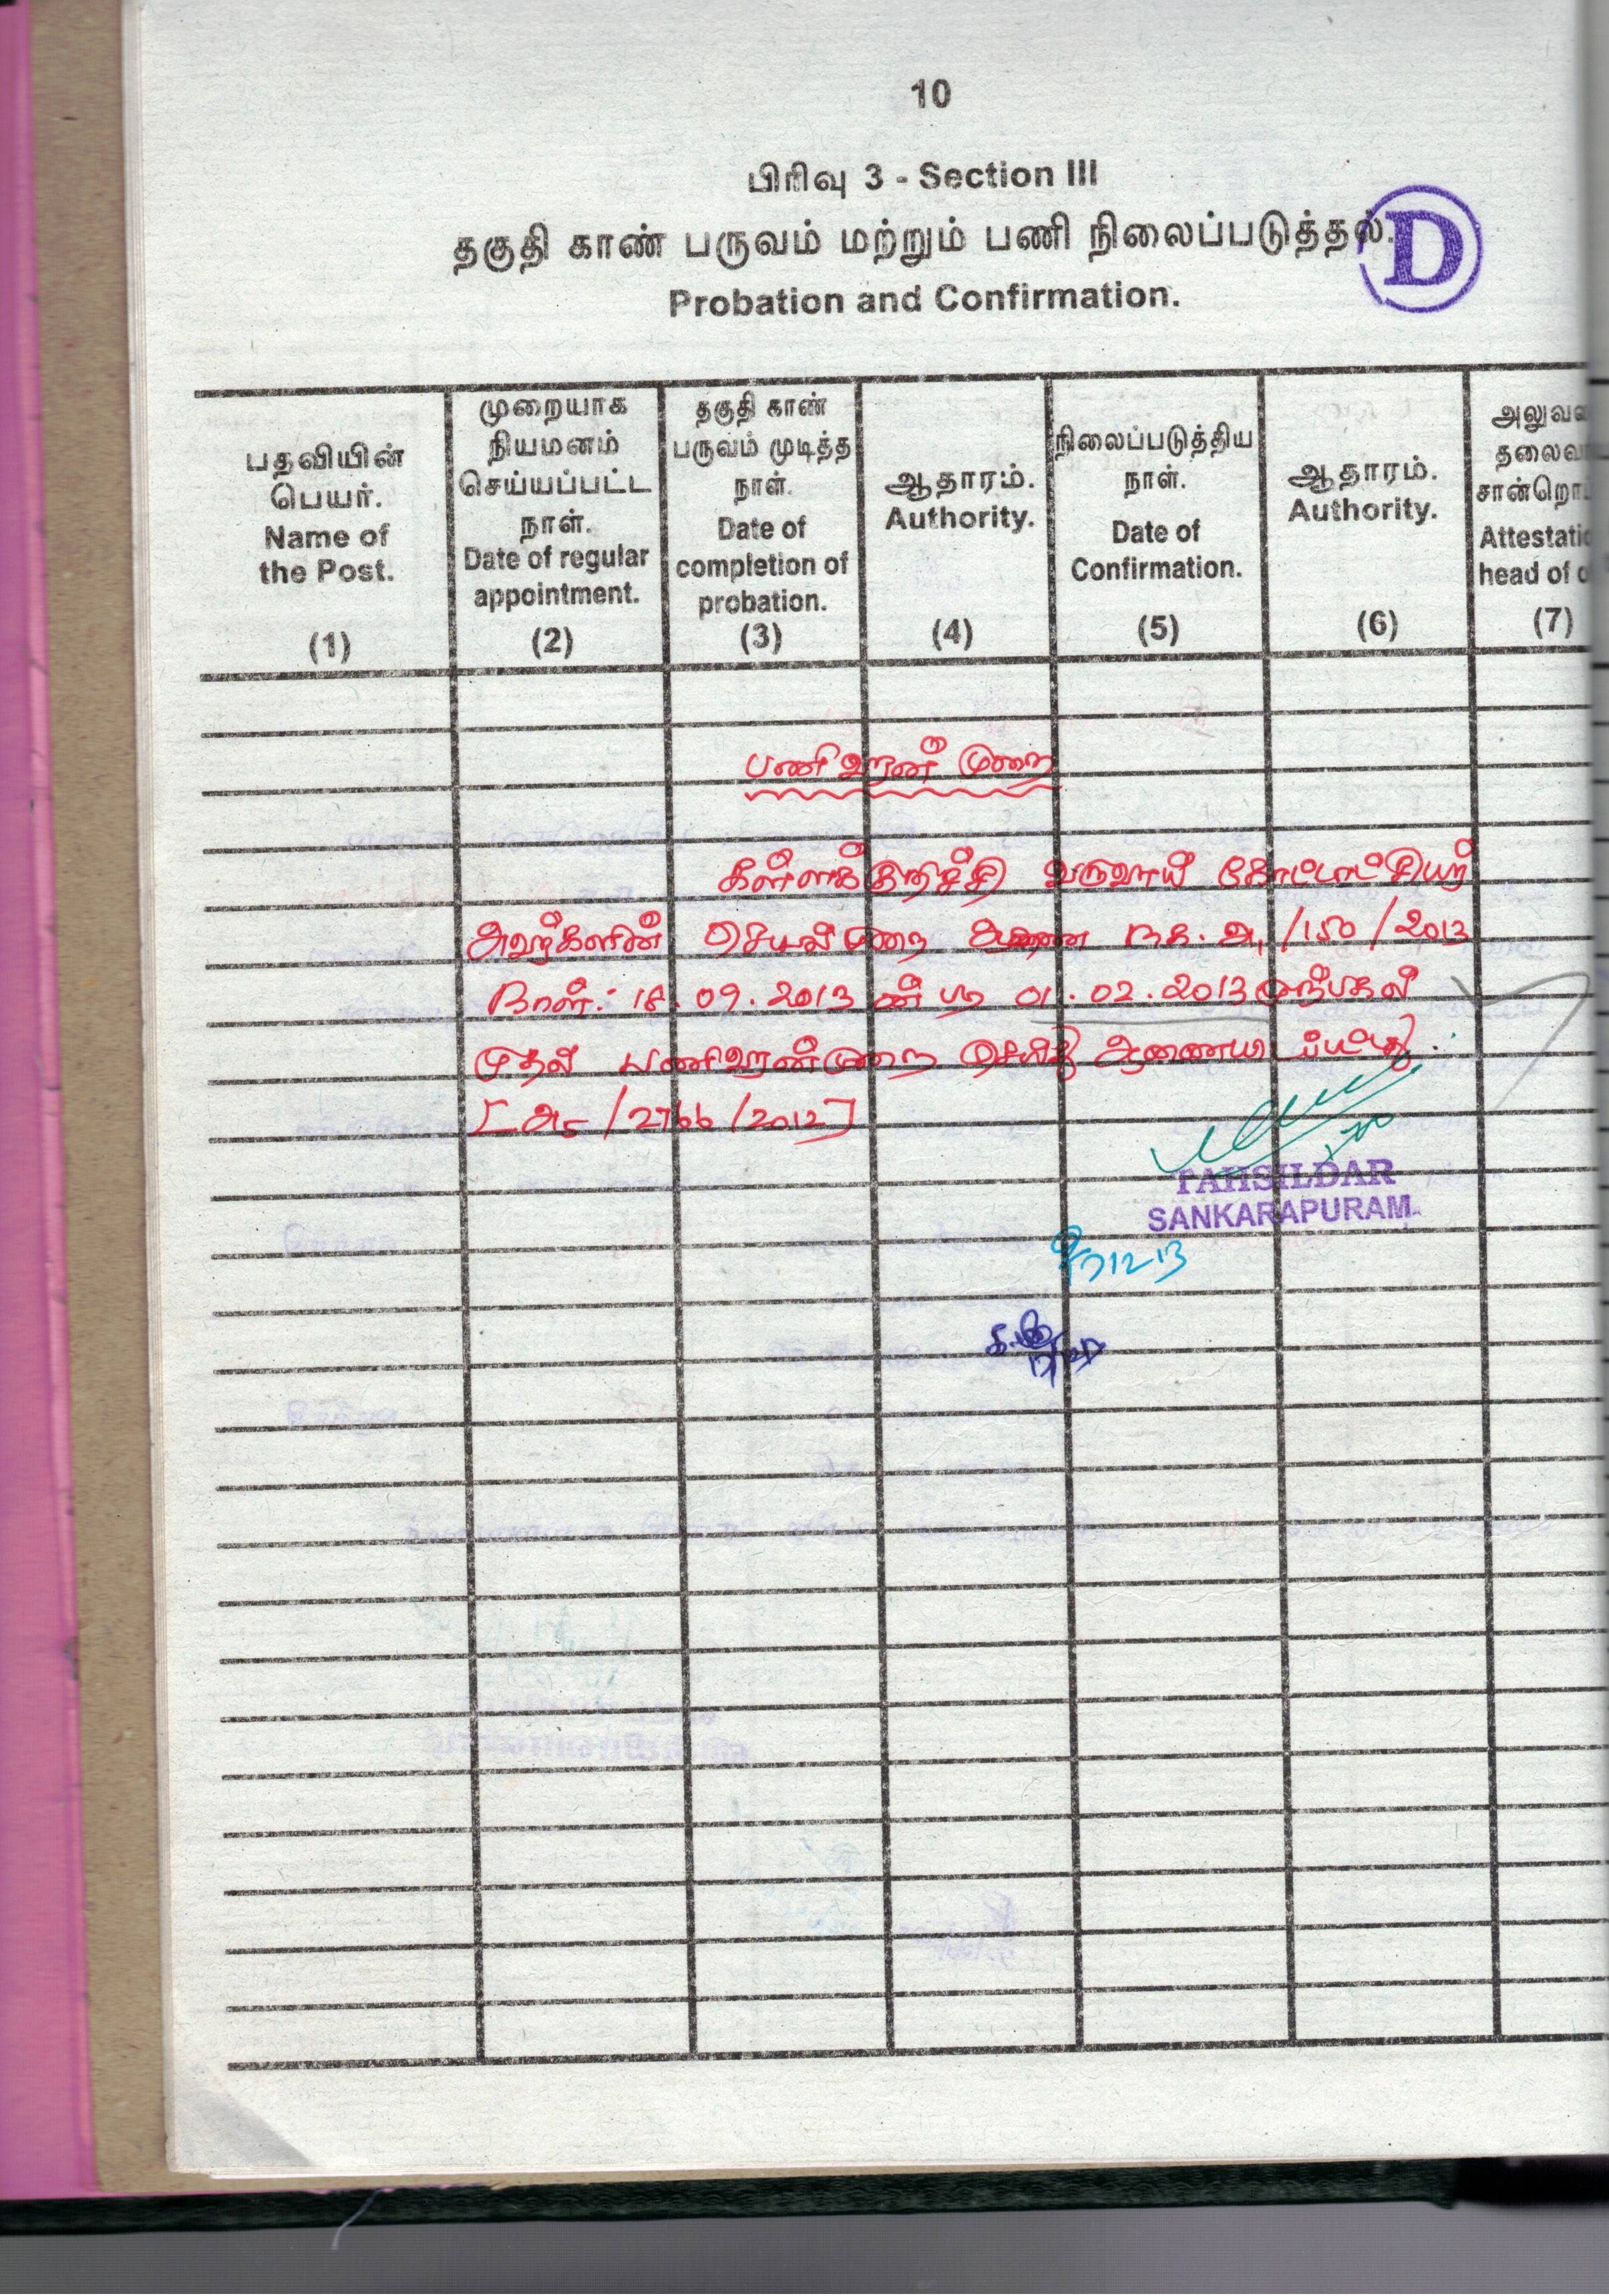 10
பிரிவு 3 - Section III
தகுதி காண் பருவம் மற்றும் பணி நிலைப்படுத்தல்.
D
Probation and Confirmation.
பதவியின் பெயர்.
Name of the Post.
(1)
முறையாக நியமனம் செய்யப்பட்ட நாள்.
Date of regular appointment.
(2)
தகுதி காண் பருவம் முடித்த நாள்.
Date of completion of probation.
(3)
ஆதாரம்.
Authority.
(4)
நிலைப்படுத்திய நாள்.
Date of Confirmation.
(5)
ஆதாரம்.
Authority.
(6)
head of
(7)
பணிவரன் முறை
கள்ளக்குறிச்சி வருவாய் கோட்டாட்சியர்
அவர்களின் செயல்முறை ஆணை ந.க. அ1/150/2013
நாள்: 18.09.2013 ன் படி 01.02.2013 முற்பகல்
முதல் பணிவரன்முறை செய்து ஆணையிடப்பட்டது.
[அ5/2766/2012]
TAHSILDAR
SANKARAPURAM.